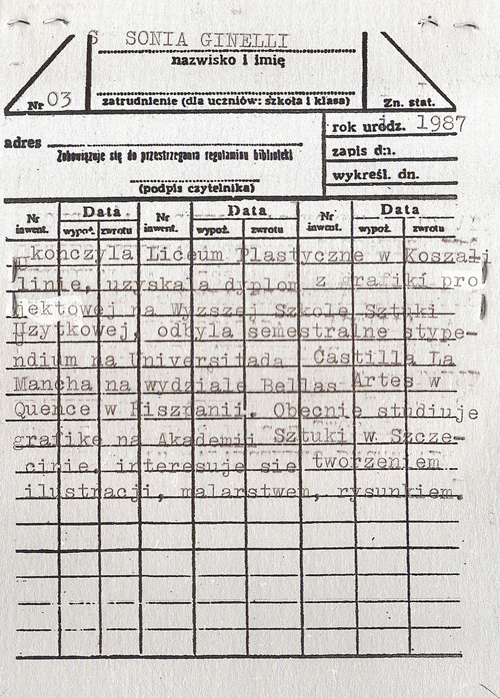 S SONIA GINELLI
nazwisko i imię
Nr 03
zatrudnienie (dla uczniów: szkoła i klasa)
Zn. stat.
adres
rok urodz. 1987
Zobowiązuje się do przestrzegania regulaminu biblioteki
zapis dn.
(podpis czytelnika)
wykreśl. dn.
Nr inwent. Data Nr inwent. Data Nr inwent. Data
wypoż. zwrotu wypoż. zwrotu wypoż. zwrotu
kończyla Liceum Plastyczne w Koszali
linie, uzyska a dyplom z grafiki pro
jektowej na Wyzszej Szkole Sztuki
Uzytkowej, odbyla semestralne stype-
ndium na Universitada Castilla La
Mancha na wydziale Bellas Artes w
Quence w Hiszpanii. Obecnie studiuje
grafike na Akademii Sztuki w Szcze-
cinie, interesuje sie tworzeniem
ilustracji, malarstwem, rysunkiem.